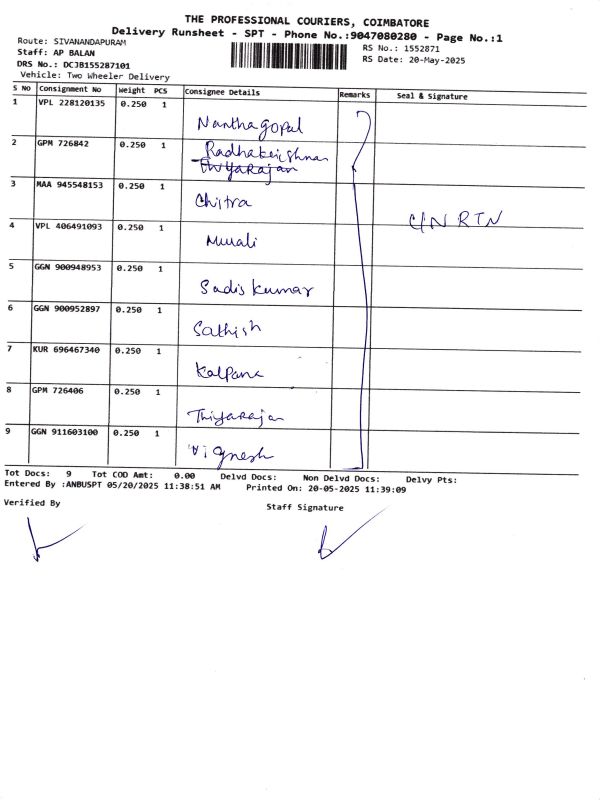 THE PROFESSIONAL COURIERS, COIMBATORE
Delivery Runsheet - SPT - Phone No.:9047080280 - Page No.:1
Route: SIVANANDAPURAM
Staff: AP BALAN
DRS No.: DCJB155287101
Vehicle: Two Wheeler Delivery
RS No.: 1552871
RS Date: 20-May-2025
S No Consignment No Weight PCS Consignee Details Remarks Seal & Signature
1 VPL 228120135 0.250 1 Nantha gopal
2 GPM 726842 0.250 1 Radhakrishnan
Thiyarajan
3 MAA 945548153 0.250 1 Chitra
C/N RTN
4 VPL 406491093 0.250 1 Murali
5 GGN 900948953 0.250 1 Sadis kumar
6 GGN 900952897 0.250 1 Sathish
7 KUR 696467340 0.250 1 Kalpana
8 GPM 726406 0.250 1 Thiyarajan
9 GGN 911603100 0.250 1 Vignesh
Tot Docs: 9 Tot COD Amt: 0.00 Delvd Docs: Non Delvd Docs: Delvy Pts:
Entered By :ANBUSPT 05/20/2025 11:38:51 AM Printed On: 20-05-2025 11:39:09
Verified By
Staff Signature